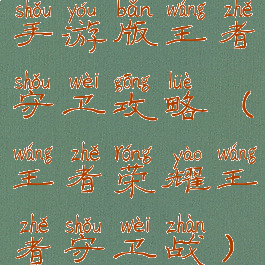 shǒu yóu bǎn wáng zhě
手游版王者
shǒu wèi gōng lüè
守卫攻略（
wáng zhě róng yào wáng
王者荣耀王
zhě shǒu wèi zhàn
者守卫战）